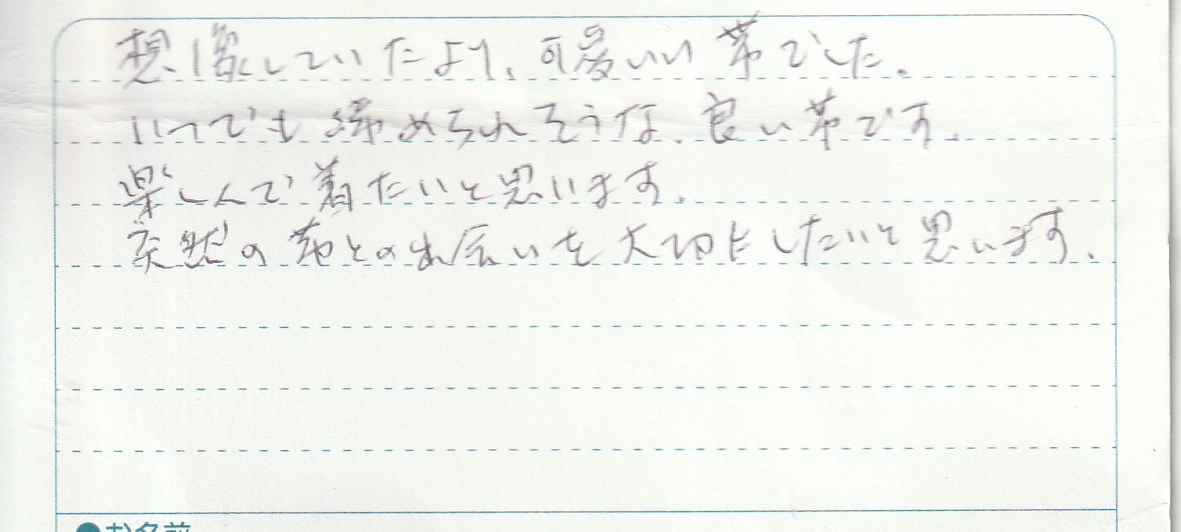 想像していたより、可愛いい帯でした。
いつでも締められそうな、良い帯です。
楽しんで着たいと思います。
突然の帯との出会いを大切にしたいと思います。
●お名前